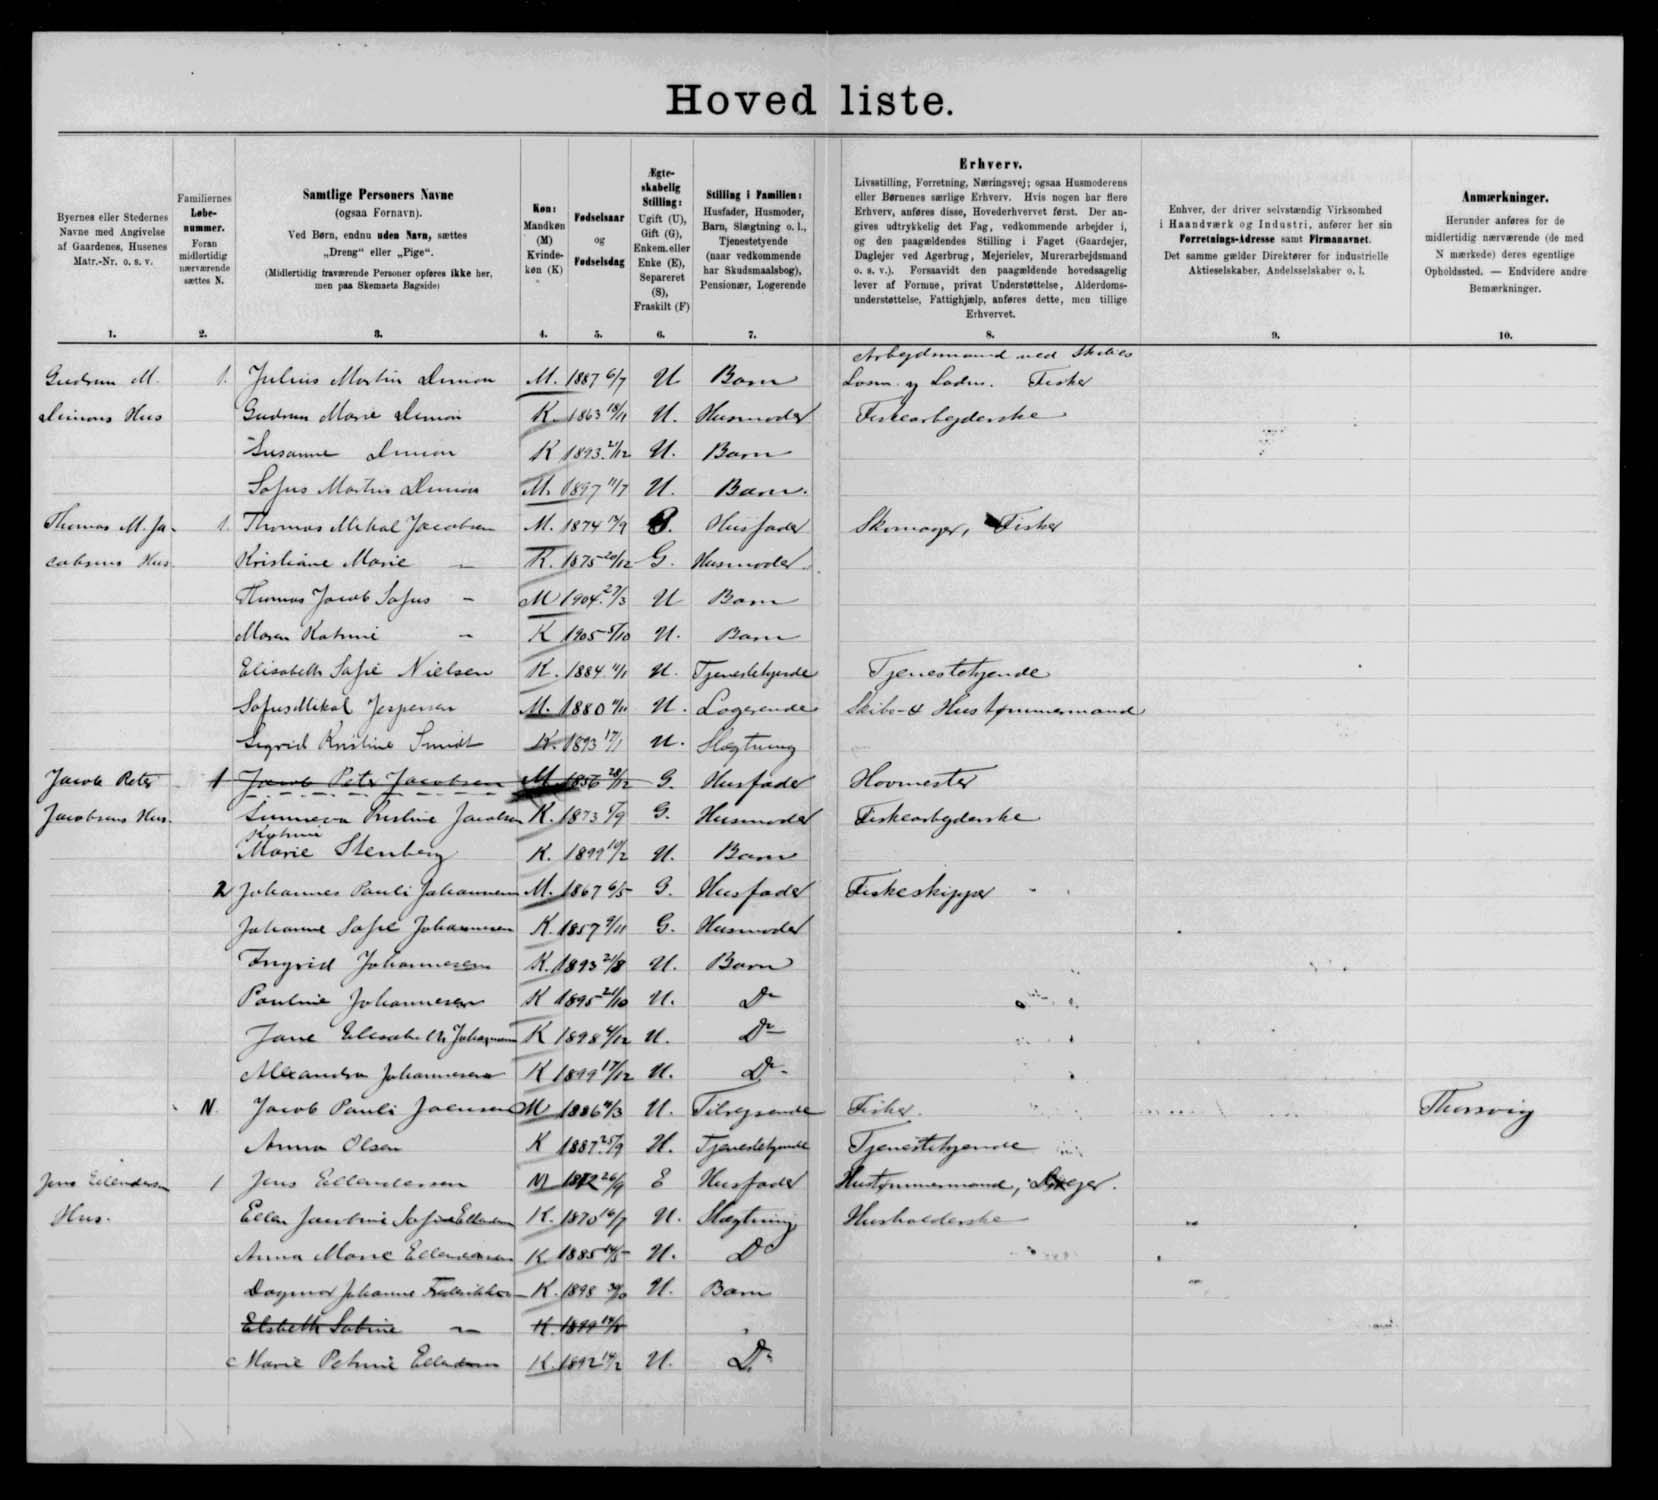 Hovedliste.
Byernes eller Stedernes Navne med Angivelse af Gaardenes, Husenes Matr.-Nr. o. s. v.
Familiernes Løbenummer. Foran midlertidig nærværende sættes N.
Samtlige Personers Navne
(ogsaa Fornavn).
Ved Børn, endnu uden Navn, sættes „Dreng“ eller „Pige“.
(Midlertidig fraværende Personer opføres ikke her, men paa Skemaets Bagside)
Køn: Mandkøn (M) Kvindekøn (K)
Fødselsaar og Fødselsdag
Ægteskabelig Stilling: Ugift (U), Gift (G), Enkem. eller Enke (E), Separeret (S), Fraskilt (F)
Stilling i Familien: Husfader, Husmoder, Barn, Slægtning o. l., Tjenestetyende (naar vedkommende har Skudsmaalsbog), Pensionær, Logerende
Erhverv.
Livsstilling, Forretning, Næringsvej; ogsaa Husmoderens
eller Børnenes særlige Erhverv. Hvis nogen har flere
Erhverv, anføres disse, Hovederhvervet først. Der an-
gives udtrykkelig det Fag, vedkommende arbejder i,
og den paagældendes Stilling i Faget (Gaardejer,
Daglejer ved Agerbrug, Mejerielev, Murerarbejdsmand
o. s. v.). Forsaavidt den paagældende hovedsagelig
lever af Formue, privat Understøttelse, Alderdoms-
understøttelse, Fattighjælp, anføres dette, men tillige
Erhvervet.
Enhver, der driver selvstændig Virksomhed
i Haandværk og Industri, anfører her sin
Forretnings-Adresse samt Firmanavnet.
Det samme gælder Direktører for industrielle
Aktieselskaber, Andelsselskaber o. l.
Anmærkninger.
Herunder anføres for de
midlertidig nærværende (de med
N mærkede) deres egentlige
Opholdssted. — Endvidere andre
Bemærkninger.
1. 2. 3. 4. 5. 6. 7. 8. 9. 10.
Arbejdsmand ved Skibes
Gudrun M. 1. Julius Martin Dimon M. 1887 6/7 U Barn Losn. og Ladn. Fisker
Dimons Hus Gudrun Marie Dimon K. 1863 18/11 U. Husmoder Fiskearbejderske
Susanne Dimon K 1893 2/12 U. Barn
Sofus Martin Dimon M. 1897 11/7 U. Barn.
Thomas M. Ja- 1. Thomas Mikal Jacobsen M. 1874 Husfader Skomager, Fisker
cobsens Hus Kristiane Marie — K. 1875 20/12 G. Husmoder.
Thomas Jacob Sofus — M 1904 27/3 U Barn
Maren Katrine — K 1905 5/10 U. Barn
Elisabeth Sofie Nielsen K. 1884 U. Tjenestetyende Tjenestetyende
Sofus Mikal Jespersen M. 1880 U. Logerende Skibs- & Hustømmermand
Sigrid Kristine Smidt K. 1893 17/1 U. Slægtning
Jacob Peter 1 Jacob Peter Jacobsen M 1856 28/12 G. Husfader Hovmester
Jacobsens Hus. Sunneva Kristine Jacobsen K. 1873 5/9 G. Husmoder Fiskearbejderske
Katrine
Marie Stenberg K. 1899 10/2 U. Barn
2 Johannes Pauli Johannesen M. 1867 6/5 G. Husfader Fiskeskipper
Johanne Sofie Johannesen K. 1857 9/11 G. Husmoder
Ingrid Johannesen K. 1893 21/8 U. Barn
Pauline Johannesen K 1895 21/10 U. Do
Jane Elisabeth Johannesen K 1898 4/12 U. Do
Alexandra Johannesen K 1899 17/12 U. Do
N. Jacob Pauli Joensen M 1886 4/3 U. Tilrejsende Fisker. Thorsvig
Anna Olsen K 1887 25/9 U. Tjenestetyende Tjenestetyende
Jens Ellendersen 1 Jens Ellendersen M 26/9 E Husfader Hustømmermand,
Hus. Ellen Jacobine Sofie Ellendersen K. 1870 16/7 U. Slægtning Husholderske
Anna Marie Ellendersen K 1885 14/5 U. Do
Dagmar Johanne Frederikke — K. 1898 U. Barn
Elsbeth Sabine — K. 1899
Marie Petrine Ellendersen K. 1892 14/2 U. Do